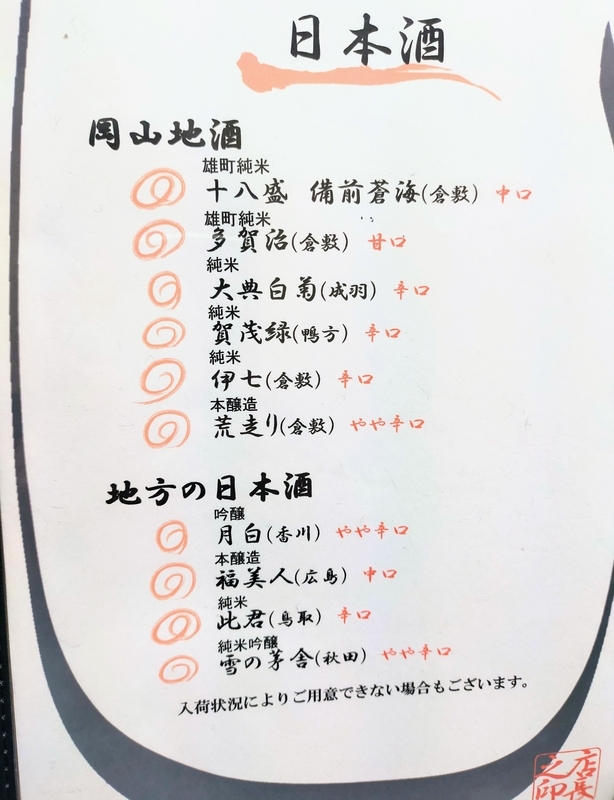 日本酒
岡山地酒
雄町純米
十八盛 備前蒼海(倉敷) 中口
雄町純米
多賀治(倉敷) 甘口
純米
大典白菊(成羽) 辛口
純米
賀茂緑(鴨方) 辛口
純米
伊七(倉敷) 辛口
本醸造
荒走り(倉敷) やや辛口
地方の日本酒
吟醸
月白(香川) やや辛口
本醸造
福美人(広島) 中口
純米
此君(鳥取) 辛口
純米吟醸
雪の茅舎(秋田) やや辛口
入荷状況によりご用意できない場合もございます。
店長
之印